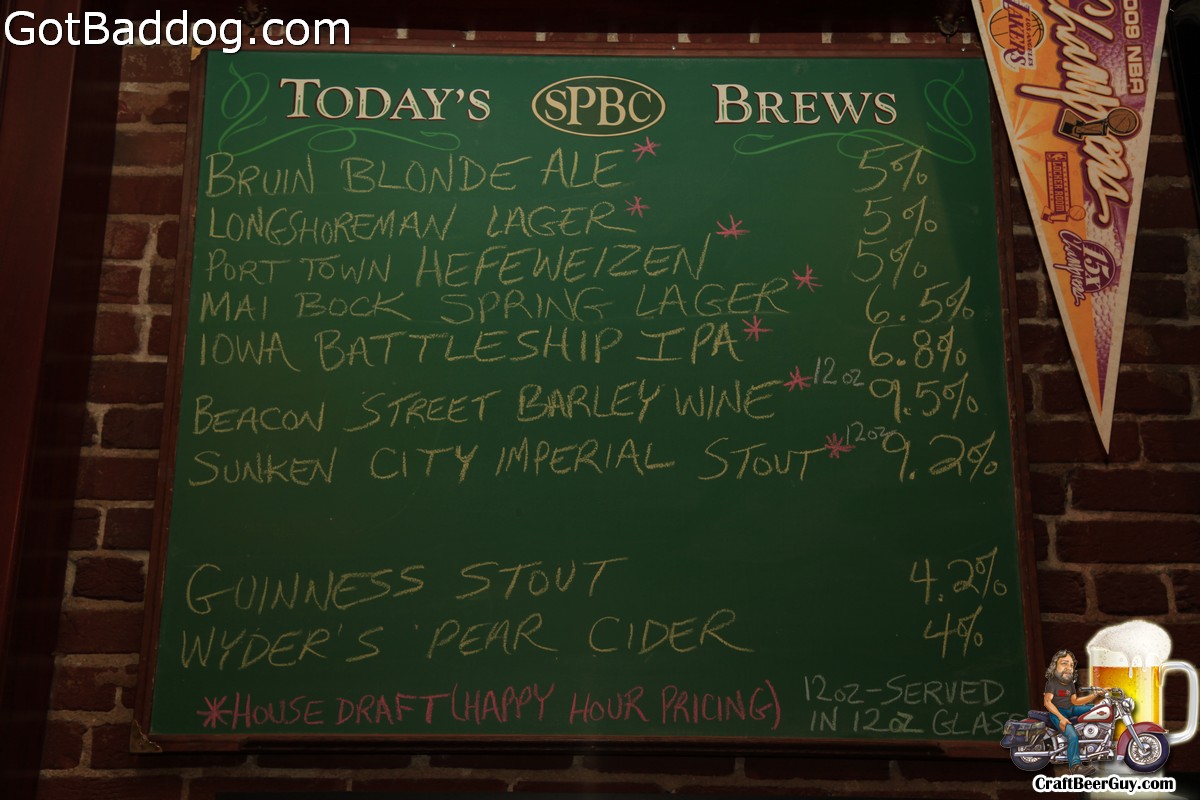 GotBaddog.com
TODAY'S SPBC BREWS
BRUIN BLONDE ALE* 5%
LONGSHOREMAN LAGER* 5%
PORT TOWN HEFEWEIZEN* 5%
MAI BOCK SPRING LAGER* 6.5%
IOWA BATTLESHIP IPA* 6.8%
BEACON STREET BARLEY WINE* 12oz 9.5%
SUNKEN CITY IMPERIAL STOUT* 12oz 9.2%
GUINNESS STOUT 4.2%
WYDER'S PEAR CIDER 4%
*HOUSE DRAFT (HAPPY HOUR PRICING)
12oz-SERVED
IN 12oz GLASS
2009 NBA
Champions
LAKERS
LOCKER ROOM
15X
CraftBeerGuy.com